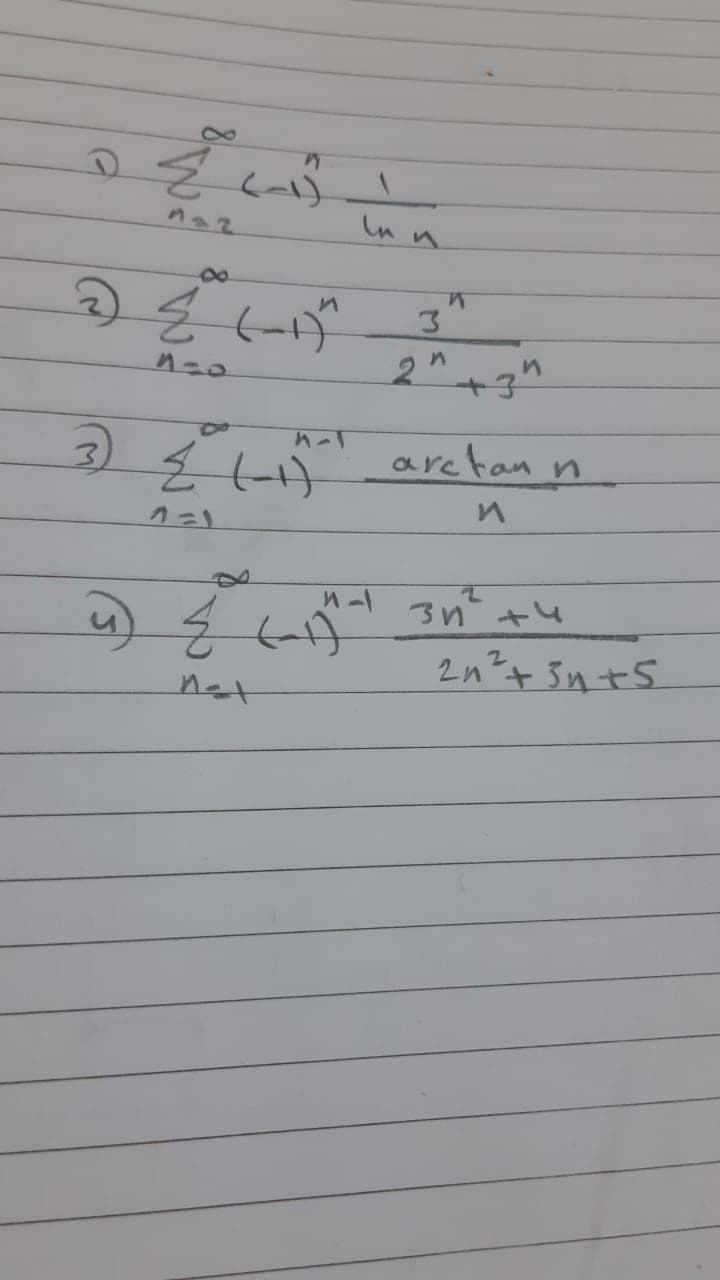 1) ∞∑n=2 (-1)^n 1/ln n
2) ∞∑n=0 (-1)^n 3^n/2^n+3^n
3) ∞∑n=1 (-1)^n-1 arctan n/n
4) ∞∑n=1 (-1)^n-1 3n^2+4/2n^2+3n+5